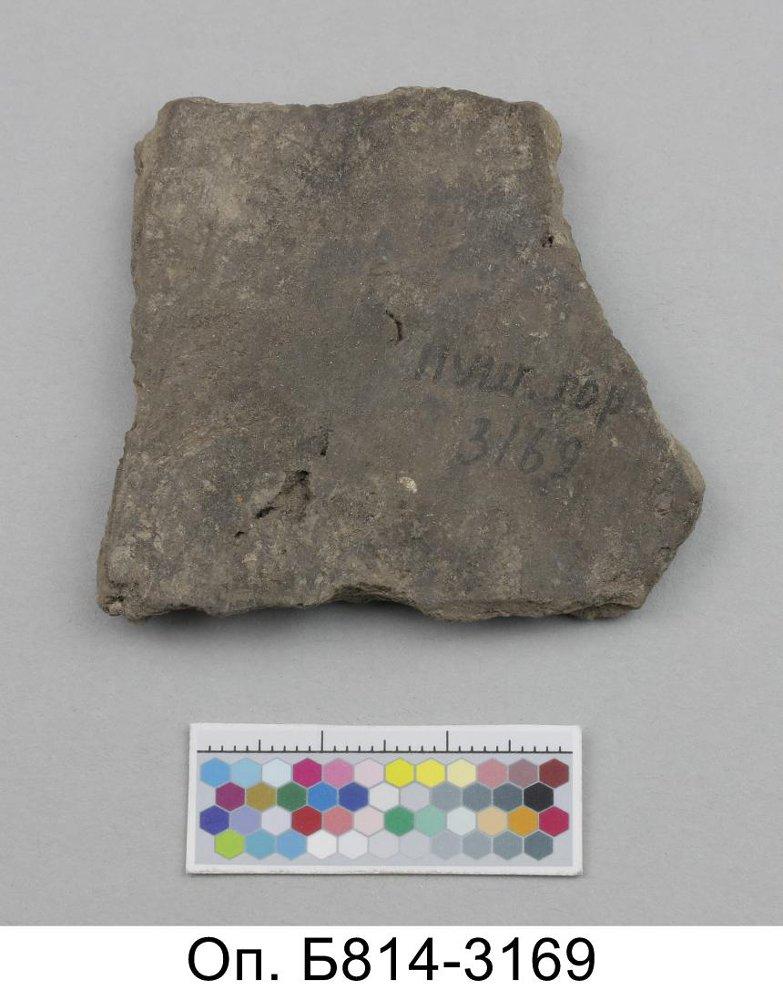 Пушг. гор
3169
Оп. Б814-3169